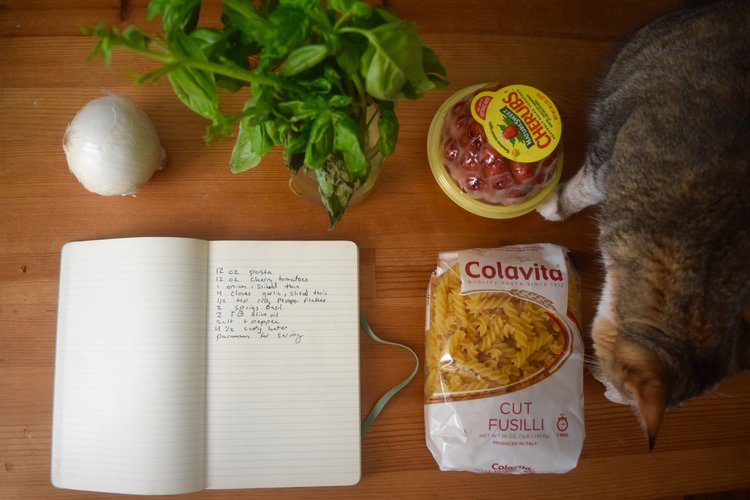 NATURESWEET
CHERUBS
12 oz pasta
12 oz cherry tomatoes
1 onion, sliced thin
4 cloves garlic, sliced thin
1/2 tsp red pepper flakes
2 sprigs basil
2 TB olive oil
salt + pepper
4 1/2 cups water
parmesan for serving
Colavita
QUALITY PASTA SINCE 1912
CUT
FUSILLI
NET WT 16 OZ. (1LB.) (454g)
PRODUCED IN ITALY
7 MIN.
Colavita